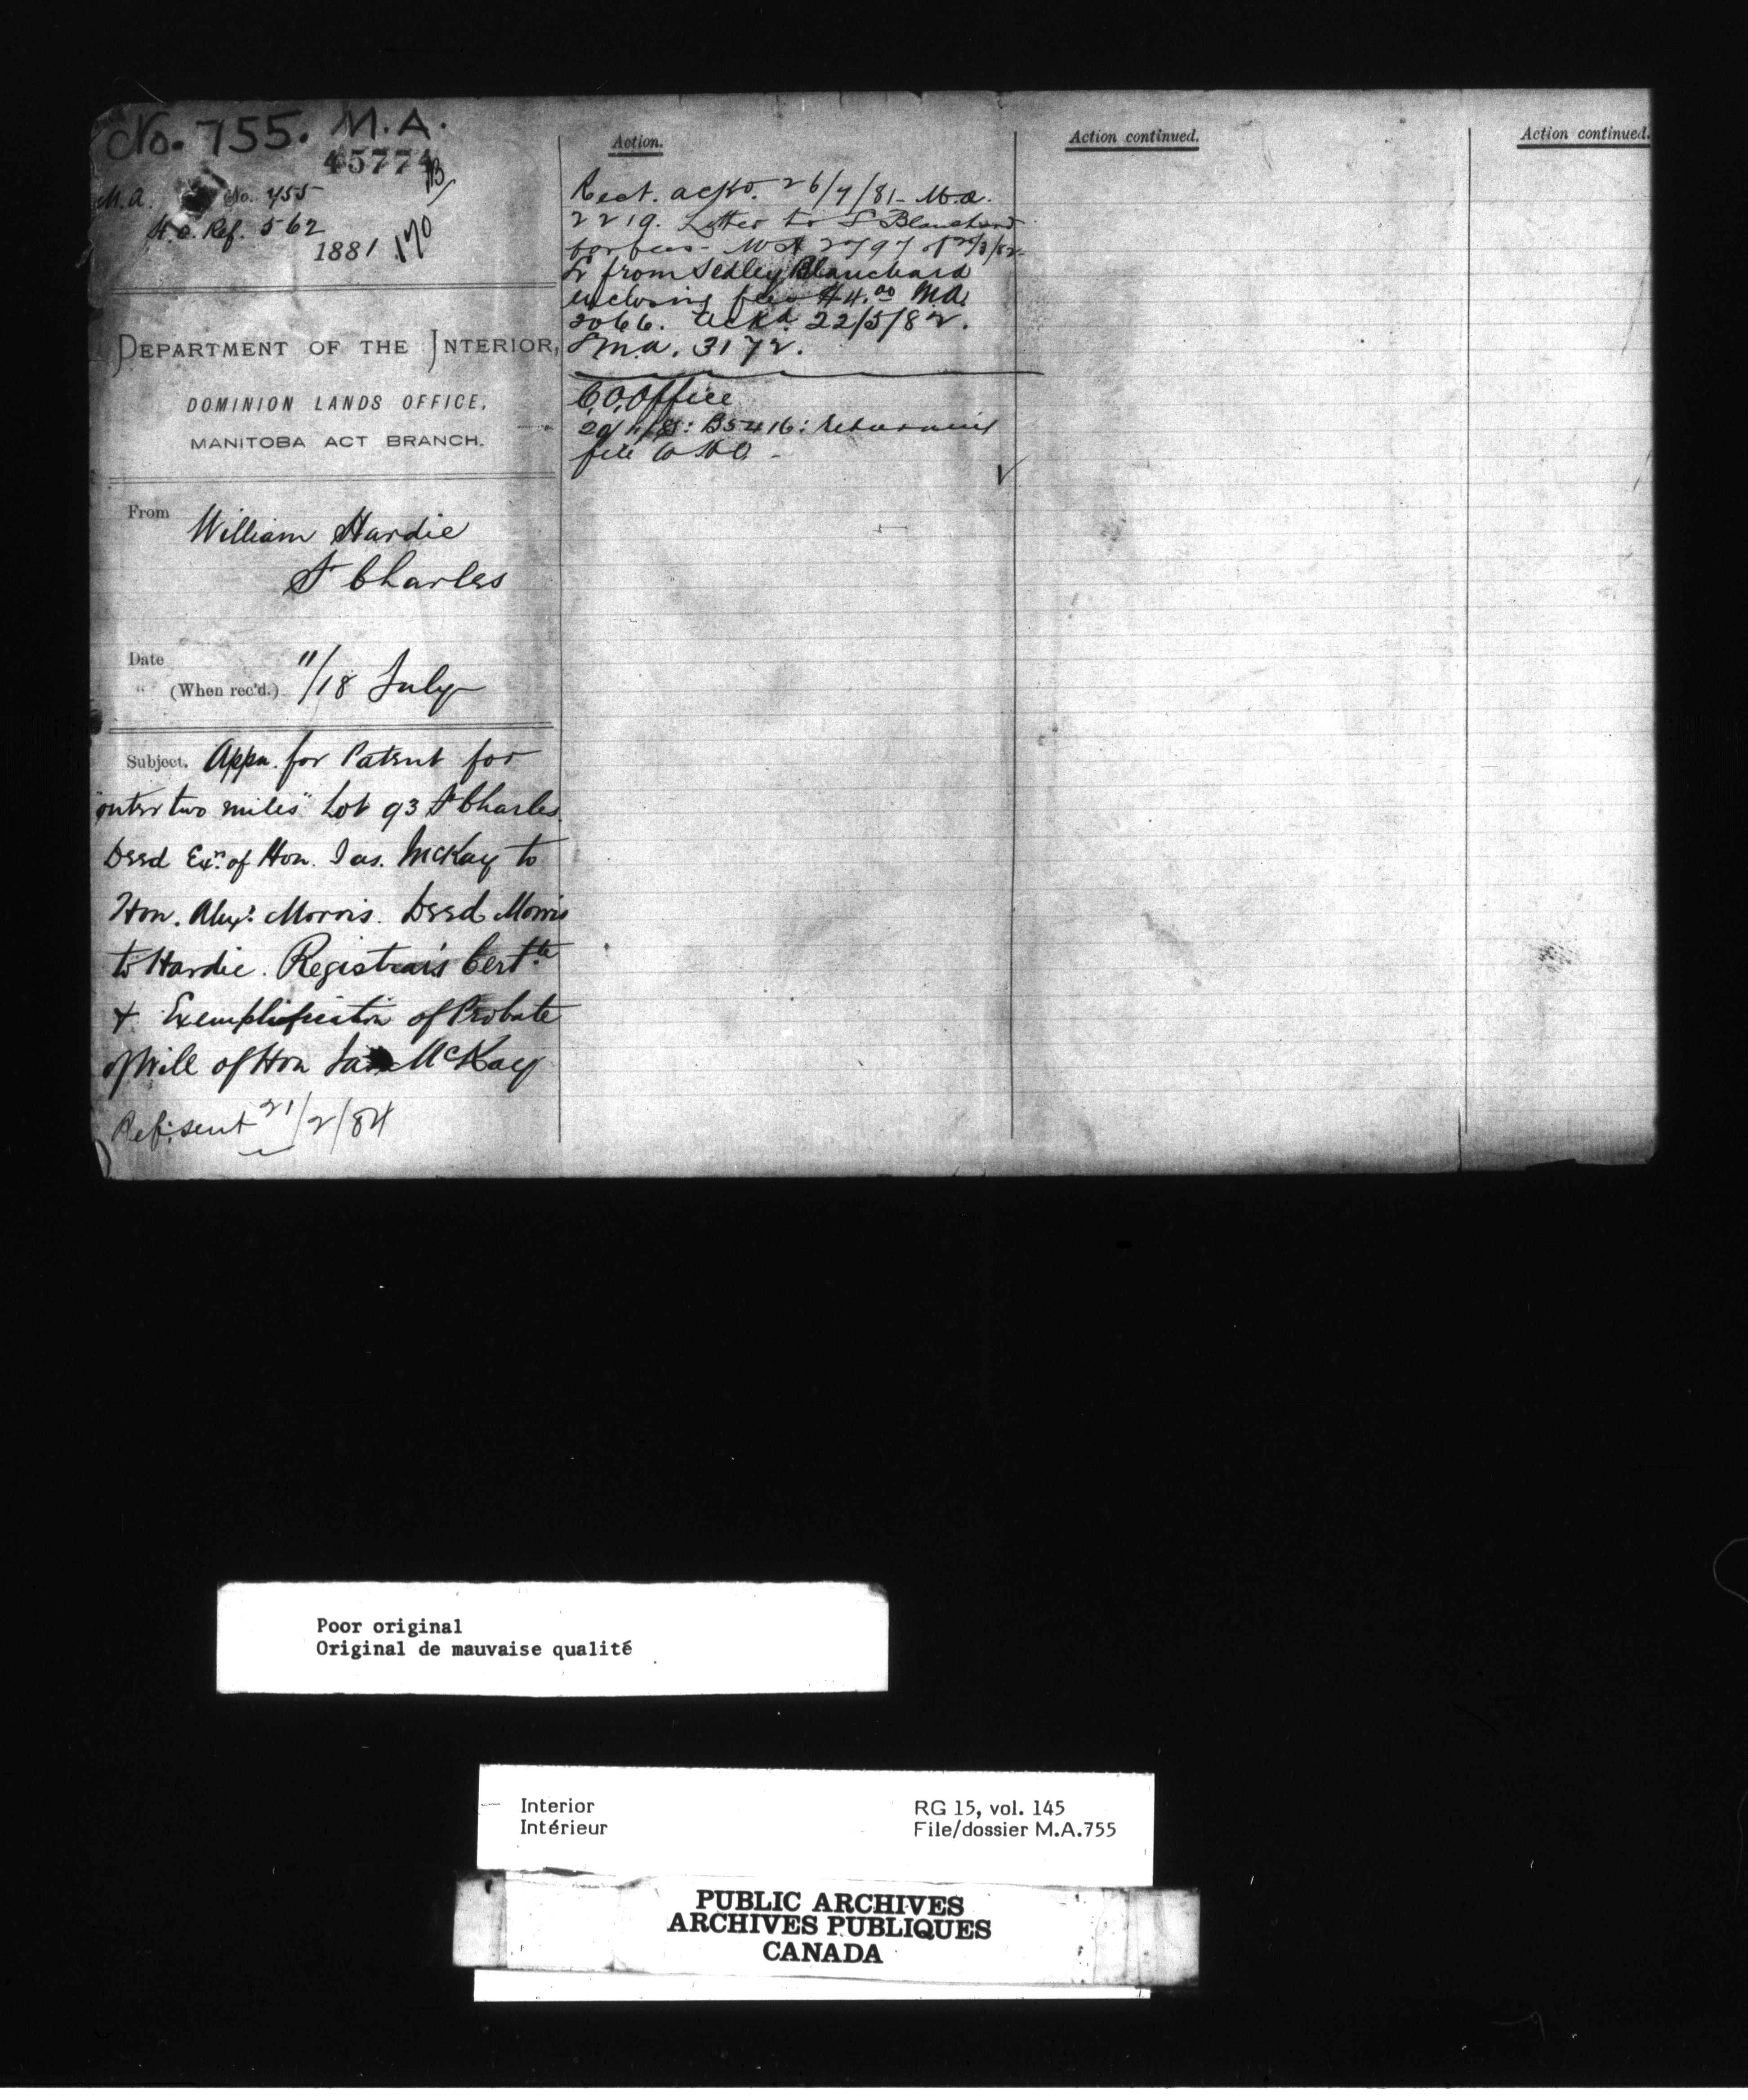 No. 755. M.A.
45774
M.A. No. 755
H.O. Ref. 562
1881 170
DEPARTMENT OF THE INTERIOR,
DOMINION LANDS OFFICE,
MANITOBA ACT BRANCH.
From William Hardie
St Charles
Date
" (When rec'd.) 11/18 July
Subject. Appn. for Patent for
"outer two miles" Lot 93 St Charles
Deed Exrs of Hon. Jas. McKay to
Hon. Alexr. Morris. Deed Morris
to Hardie. Registrar's Certte
& Exemplification of Probate
of Will of Hon Jas McKay
Ref. sent 21/2/84
Action.
Rect. ackd. 26/7/81 - M.A.
2219. Letter to S Blanchard
for fees - M A 2797 of
Lr from Sedley Blanchard
enclosing fees $4.00 M.A.
3066. Ackd. 22/5/82.
M.A. 3172.
C.O. Office
B5416: Returning
file to H.O. -
Action continued.
Action continued.
Poor original
Original de mauvaise qualité
Interior
Intérieur
RG 15, vol. 145
File/dossier M.A.755
PUBLIC ARCHIVES
ARCHIVES PUBLIQUES
CANADA